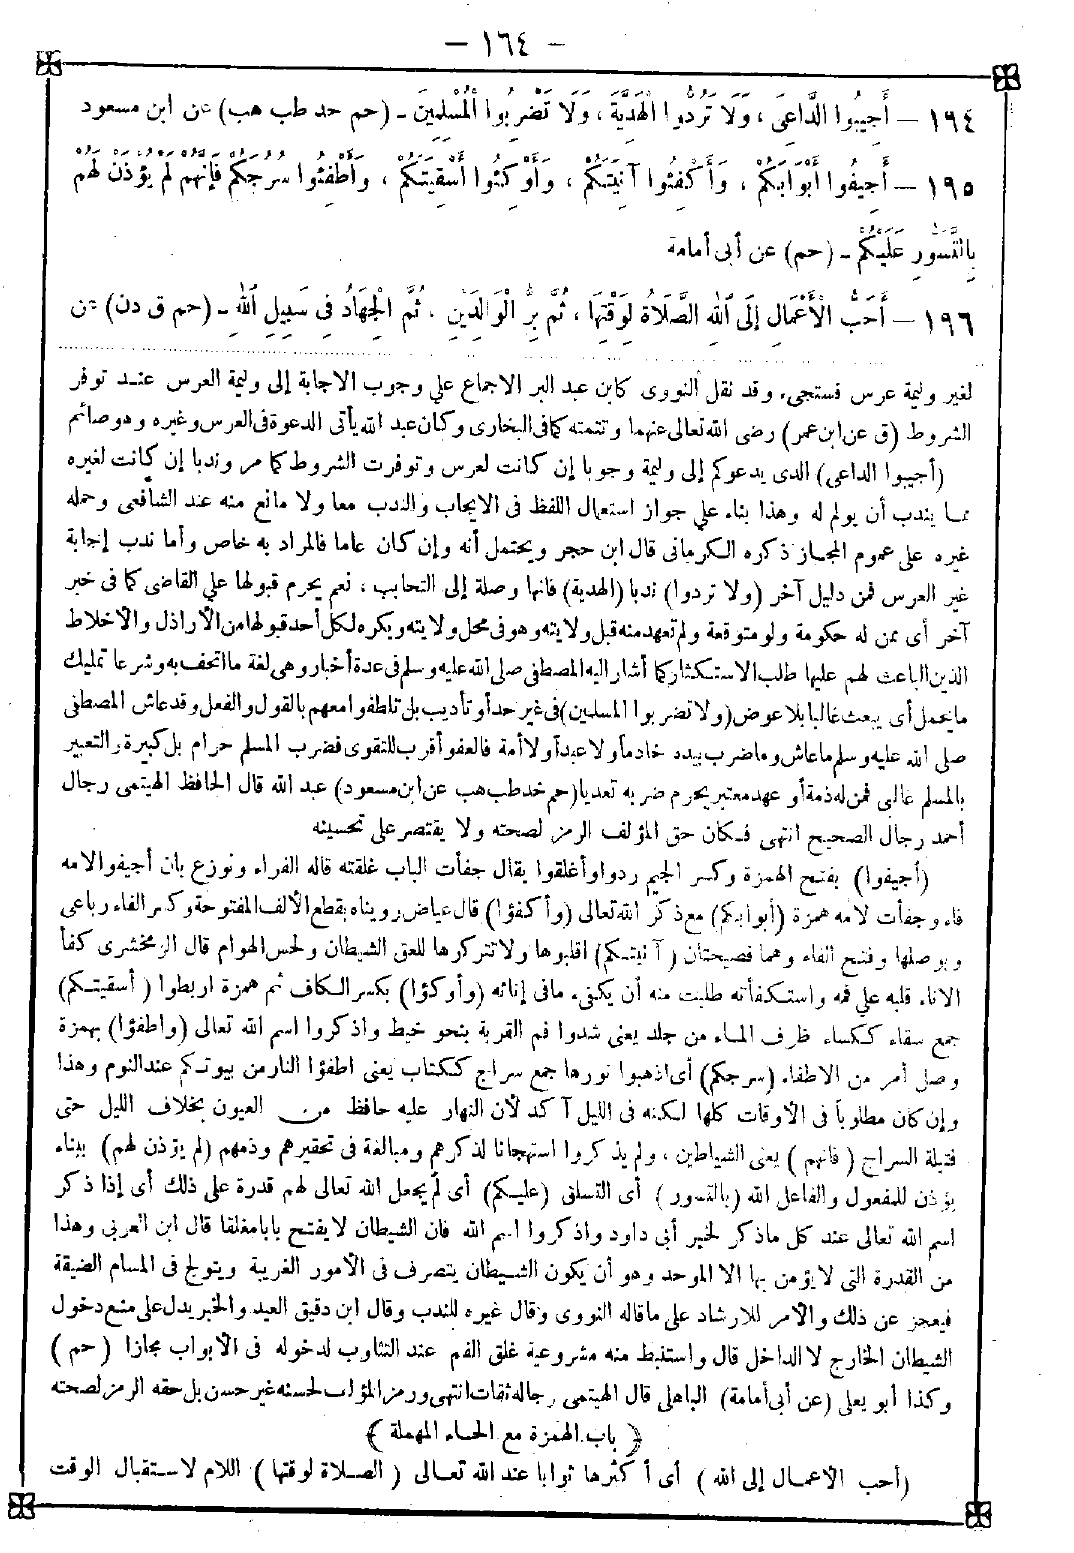 – ١٦٤ –
١٩٤ – أَجِيبُوا الدَّاعِيَ، وَلَا تَرُدُّوا الْهَدِيَّةَ، وَلَا تَضْرِبُوا الْمُسْلِمِينَ - (حم خد طب هب) عن ابن مسعود
١٩٥ – أَجِيفُوا أَبْوَابَكُمْ، وَأَكْفِئُوا آنِيَتَكُمْ، وَأَوْكِئُوا أَسْقِيَتَكُمْ، وَأَطْفِئُوا سُرُجَكُمْ فَإِنَّهُمْ لَمْ يُؤْذَنْ لَهُمْ
بِالتَّسَوُّرِ عَلَيْكُمْ - (حم) عن أبى أمامة
١٩٦ – أَحَبُّ الْأَعْمَالِ إِلَى اللهِ الصَّلَاةُ لِوَقْتِهَا، ثُمَّ بِرُّ الْوَالِدَيْنِ، ثُمَّ الْجِهَادُ فِي سَبِيلِ اللهِ - (حم ق دن) عن
لغير وليمة عرس فستجىء وقد نقل النووى كابن عبد البر الاجماع على وجوب الاجابة إلى وليمة العرس عند توفر
الشروط (ق عن ابن عمر) رضى الله تعالى عنهما وتتمته كما فى البخارى وكان عبد الله يأتى الدعوة فى العرس وغيره وهو صائم
(أجيبوا الداعى) الذى يدعوكم إلى وليمة وجوبا إن كانت لعرس وتوفرت الشروط كما مر وندبا إن كانت لغيره
مما يندب أن يولم له وهذا بناء على جواز استعمال اللفظ فى الايجاب والندب معا ولا مانع منه عند الشافعى وحمله
غيره على عموم المجاز ذكره الكرمانى قال ابن حجر ويحتمل أنه وإن كان عاما فالمراد به خاص وأما ندب إجابة
غير العرس فمن دليل آخر (ولا تردوا) ندبا (الهدية) فانها وصلة إلى التحابب، نعم يحرم قبولها على القاضى كما فى خبر
آخر أى ممن له حكومة ولو متوقعة ولم تعهد منه قبل ولايته وهو فى محل ولايته ويكره لكل أحد قبولها من الأراذل والأخلاط
الذين الباعث لهم عليها طلب الاستكثار كما أشار اليه المصطفى صلى الله عليه وسلم فى عدة أخبار وهى لغة ما اتحف به وشرعا تمليك
ما يحمل أى يبعث غالبا بلا عوض (ولا تضربوا المسلمين) فى غير حد أو تأديب بل تلطفوا معهم بالقول والفعل وقد عاش المصطفى
صلى الله عليه وسلم ما عاش وما ضرب بيده خادماً ولا عبداً ولا أمة فالعفو أقرب للتقوى فضرب المسلم حرام بل كبيرة والتعبير
بالمسلم غالبى فمن له ذمة أو عهد معتبر يحرم ضربه تعديا (حم خد طب هب عن ابن مسعود) عبد الله قال الحافظ الهيتمى رجال
أحمد رجال الصحيح انتهى فكان حق المؤلف الرمز لصحته ولا يقتصر على تحسينه
(أجيفوا) بفتح الهمزة وكسر الجيم ردوا وأغلقوا يقال جفأت الباب غلقته قاله الفراء ونوزع بان أجيفوا لامه
فاء وجفأت لامه همزة (أبوابكم) مع ذكر الله تعالى (وأكفؤا) قال عياض رويناه بقطع الألف المفتوحة وكسر الفاء رباعى
وبوصلها وفتح الفاء وهما فصيحتان (آنيتكم) اقلبوها ولا تتركوها للعق الشيطان ولحس الهوام قال الزمخشرى كفأ
الاناء قلبه على فمه واستكفأته طلبت منه أن يكفىء مافى إنائه (وأوكؤا) بكسر الكاف ثم همزة اربطوا (أسقيتكم)
جمع سقاء ككساء ظرف الماء من جلد يعنى شدوا فم القربة بنحو خيط واذكروا اسم الله تعالى (واطفؤا) بهمزة
وصل أمر من الاطفاء (سرجكم) أى اذهبوا نورها جمع سراج ككتاب يعنى اطفؤا النار من بيوتكم عند النوم وهذا
وإن كان مطلوباً فى الأوقات كلها لكنه فى الليل آكد لأن النهار عليه حافظ من العيون بخلاف الليل حتى
فتيلة السراج (فانهم) يعنى الشياطين، ولم يذكروا استهجانا لذكرهم ومبالغة فى تحقيرهم وذمهم (لم يؤذن لهم) ببناء
يؤذن للمفعول والفاعل الله (بالتسور) أى التسلق (عليكم) أى لم يجعل الله تعالى لهم قدرة على ذلك أى إذا ذكر
اسم الله تعالى عند كل ماذكر لخبر أبى داود واذكروا اسم الله فان الشيطان لا يفتح بابا مغلقا قال ابن العربى وهذا
من القدرة التى لا يؤمن بها الا الموحد وهو أن يكون الشيطان يتصرف فى الأمور الغريبة ويتولج فى المسام الضيقة
فيعجز عن ذلك والأمر للارشاد على ماقاله النووى وقال غيره للندب وقال ابن دقيق العيد والخبر يدل على منع دخول
الشيطان الخارج لا الداخل قال واستنبط منه مشروعية غلق الفم عند التثاوب لدخوله فى الأبواب مجازا (حم)
وكذا أبو يعلى (عن أبى أمامة) الباهلى قال الهيتمى رجاله ثقات انتهى ورمز المؤلف لحسنه غير حسن بل حقه الرمز لصحته
﴿ باب الهمزة مع الحاء المهملة ﴾
(أحب الأعمال إلى الله) أى أكثرها ثوابا عند الله تعالى (الصلاة لوقتها) اللام لاستقبال الوقت